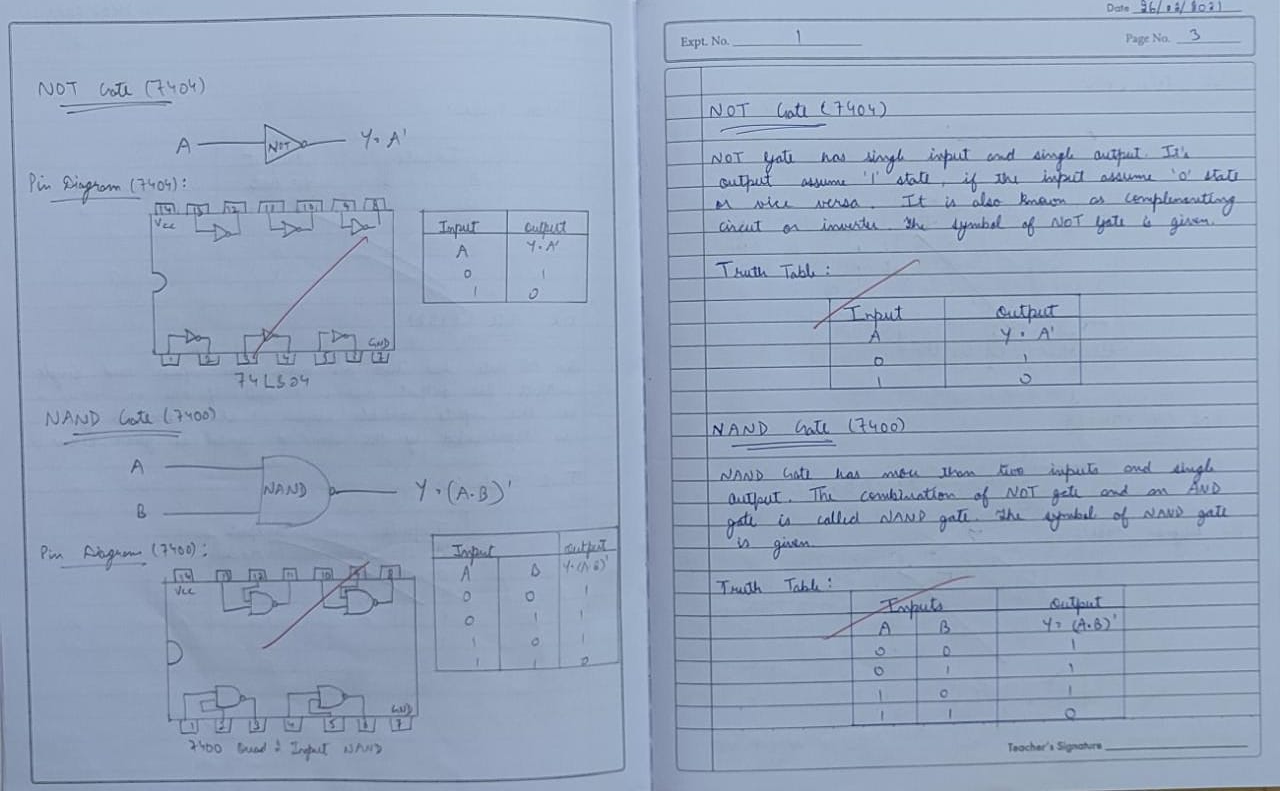 NOT Gate (7404)
A NOT Y = A'
Pin Diagram (7404):
14 13 12 11 10 9 8
Vcc
Input Output
A Y = A'
0 1
1 0
GND
1 2 3 4 5 6 7
74LS04
NAND Gate (7400)
A
NAND Y = (A.B)'
B
Pin Diagram (7400):
14 13 12 11 10 9 8
Vcc
Input Output
A B Y=(A.B)'
0 0 1
0 1 1
1 0 1
1 1 0
GND
1 2 3 4 5 6 7
7400 Quad 2 Input NAND
Date 26/02/2021
Expt. No. 1
Page No. 3
NOT Gate (7404)
NOT gate has single input and single output. It's
output assume '1' state, if the input assume '0' state
or vice versa. It is also known as complementing
circut or inverter. The symbol of NOT Gate is given.
Truth Table:
Input Output
A Y = A'
0 1
1 0
NAND Gate (7400)
NAND Gate has more than two inputs and single
output. The combination of NOT gate and an AND
gate is called NAND gate. The symbol of NAND gate
is given
Truth Table:
Inputs Output
A B Y = (A.B)'
0 0 1
0 1 1
1 0 1
1 1 0
Teacher's Signature